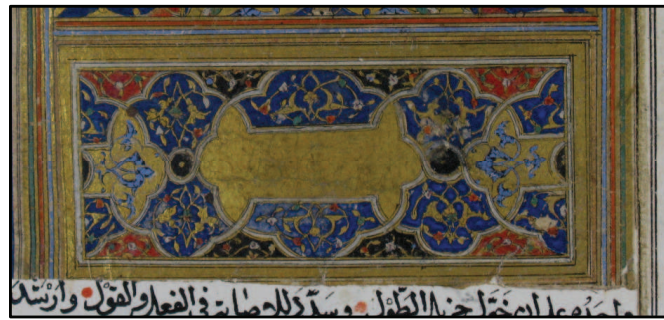 واحمده على ان خوّل جزيل الطّوْل • وسدّد للاصابة في الفعل والقوْل • وارشد